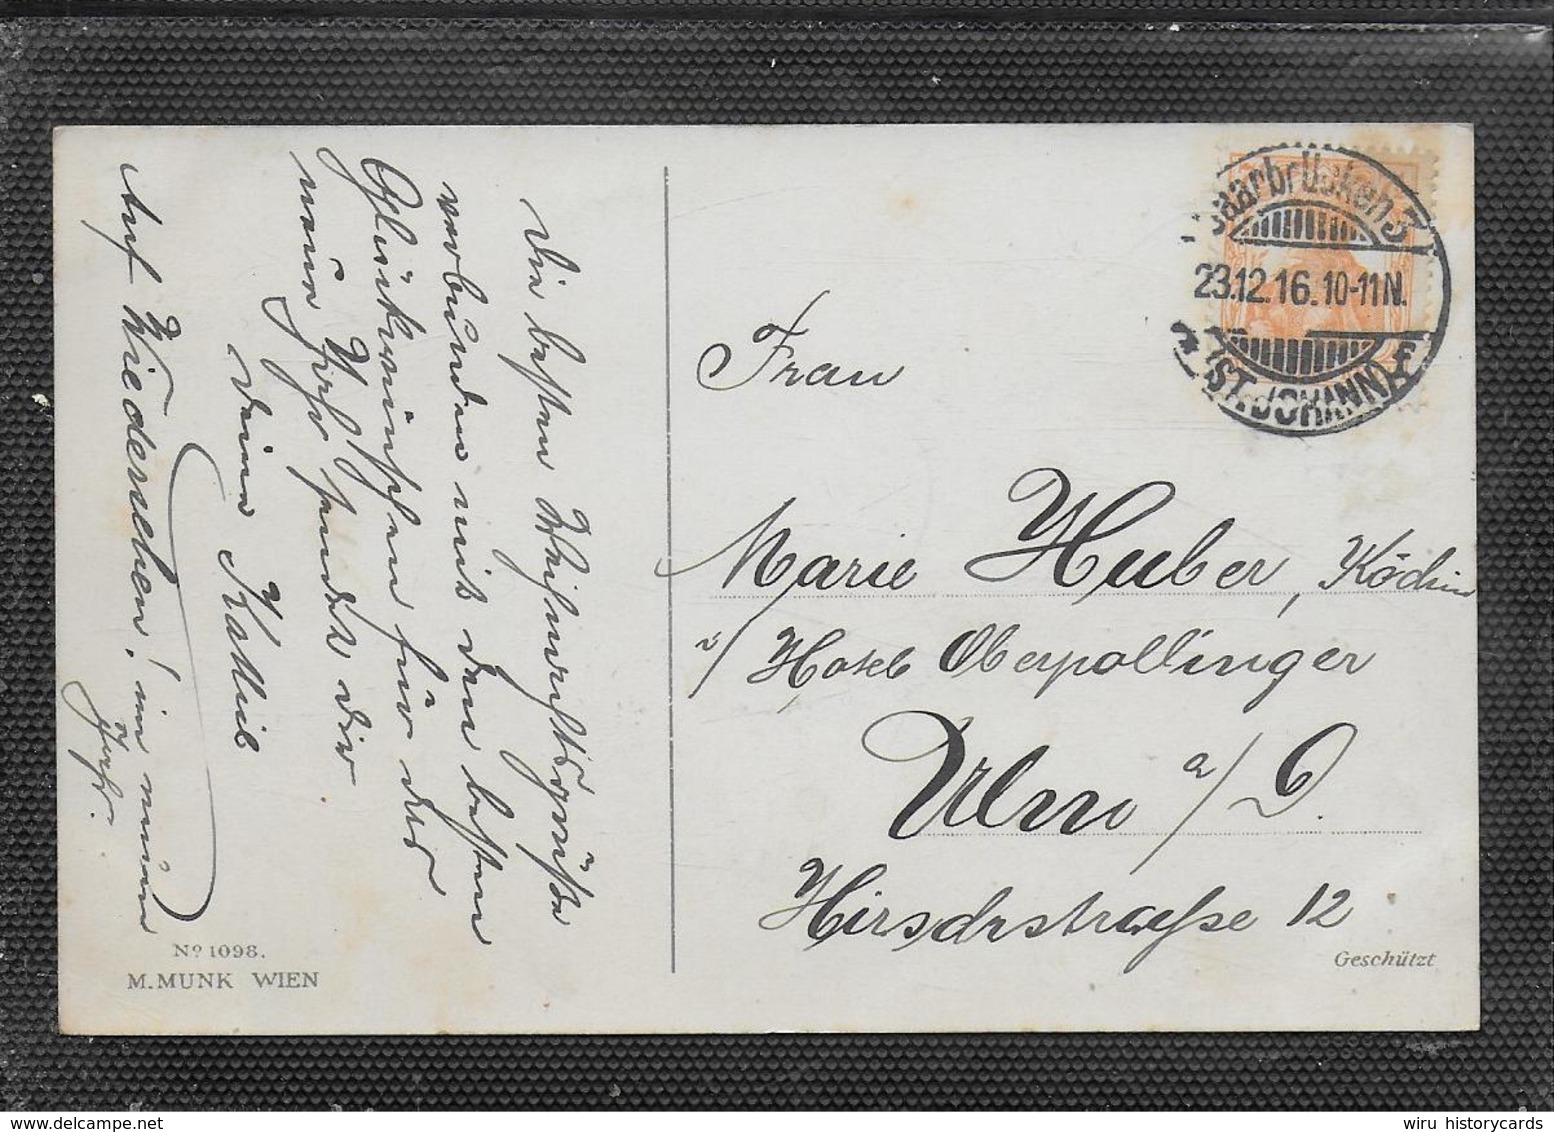 Die besten Weihnachtsgrüße
verbunden mit den besten
Glückwünschen für das
neue Jahr sendet dir
deine Kathie
Auf Wiedersehen! im neuen
Jahr.
No 1098.
M.MUNK WIEN
Saarbrücken 3
23.12.16.10-11N.
(ST. JOHANN) F
Frau
Marie Huber, Köchin
a/ Hotel Oberpollinger
Ulm a/D.
Hirschstraße 12
Geschützt
wiru historycards